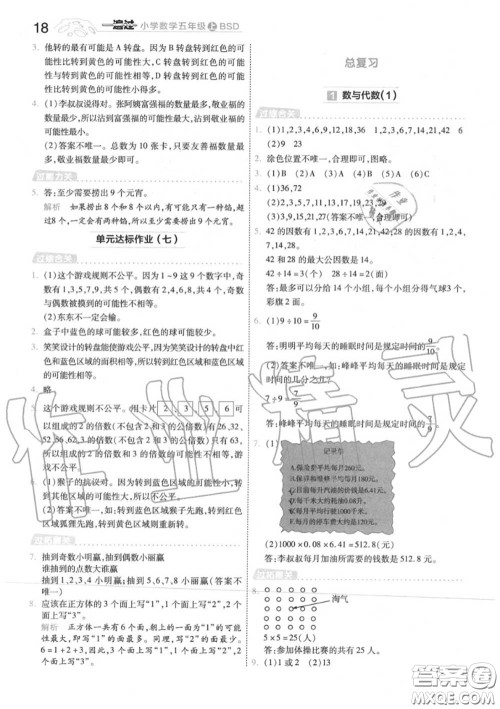 18 一遍过 小学数学五年级 上 BSD
3. 他转的最有可能是 A 转盘。因为 B 转盘转到红色的可
能性比转到黄色的可能性小,C 转盘转到红色的可能性
和转到黄色的可能性相等,D 转盘转到红色的可能性比
转到黄色的可能性小。
4. (1)李叔叔说得对。张阿姨富强福的数量最多,敬业福的
数量最少,所以沾到富强福的可能性最大,沾到敬业福的
可能性最小。
(2)答案不唯一。总数为 10 张卡,只要友善福数量最多,
敬业福数量最少即可。
5. 答:至少需要捞出 9 个元宵。
解析 如果捞出 8 个和 8 个以内,有可能只有一种馅,超
过8 个,一定会有两种馅,所以至少要捞出 9 个元宵。
单元达标作业(七)
1. (1)这个游戏规则不公平。因为 1~9 这 9 个数字中,奇
数有 1,3,5,7,9,共 5 个,偶数有 2,4,6,8,共 4 个,奇数
与偶数被摸到的可能性不相等。
(2)东东不一定会输。
2. 盒子中蓝色的球可能较多,红色的球可能较少。
3. 笑笑设计的转盘能优胜。因为笑笑设计的转盘中红色
区域和蓝色区域的面积相等,所以转到红色区域和蓝色
区域的可能性相等。
4. 略
5. 这个游戏规则不公平。用卡片 2 , 3 , 5 , 6 可
所以组成的 2 的倍数的可能性大,这个游戏规则不公平。
6. (1)猴子的挑战对。因为转盘中红色区域最大,所以转到
红色区域的可能性最大。
(2)答案不唯一。如:转到蓝色区域猴子先跑,转到红色
区域狐狸先跑,转到灰色区域重新转。
7. 抽到奇数小明赢,抽到偶数小丽赢
谁抽到的点数大谁赢
抽到 1,2,3,4 小明赢,抽到 5,6,7,8 小丽赢(答案不唯一)
8. 应该在正方体的 3 个面上写“1”,2 个面上写“2”,1 个面
上写“3”。
解析 正方体一共有 6 个面,朝上的一面为“1”的可能性
最大,即写“1”的面最多。同理,写“2”的面第二多。
6=1+2+3,因此 3 个面上写“1”,2 个面上写“2”,1 个
面上写“3”。
总复习
1 数与代数(1)
1. (1)1,2,3,4,6,9,12,18,36 1,2,3,6,7,14,21,42 6
(2)9 23
2. 涂色位置不唯一,合理即可,图略。
3. (1)B (2)A (3)B (4)B (5)A (6)C
4. (1)36,72
(2)1,3,7,9,11,13,17,19,23,29
(3)3×9=27(答案不唯一,合理即可)
5. 42 的因数有 1,2,3,6,7,14,21,42,28 的因数有 1,2,4,
7,14,28。
42 和 28 的最大公因数是 14。
42÷14=3(个) 28÷14=2(面)
答:最多可以给 14 个小组,每个小组分得气球3 个,
彩旗 2 面。
6. (1)9÷10=9/10
答:明明平均每天的睡眠时间是规定时间的9/10。
(2)答案不唯一,如:峰峰平均每天的睡眠时间是规定
时间的几分之几?
7÷9=7/9
答:峰峰平均每天的睡眠时间是规定时间的7/9。
7. (1)
记录单
A.保险费平均每月260元。
B.保养和维修平均每月180元。
C.目前每升汽油的价格是6.41元。
D.每千米大约耗油0.08升。
E.每月平均行驶1000千米。
F.每月的停车费大约是120元。
(2)1000×0.08×6.41=512.8(元)
答:李叔叔每月加油所需要的钱数是 512.8 元。
8.
淘气
5×5=25(名)
答:参加体操比赛的共有 25 人。
9. (1)1 或 2 (2)13
作业精灵
答案圈
MXQE.COM